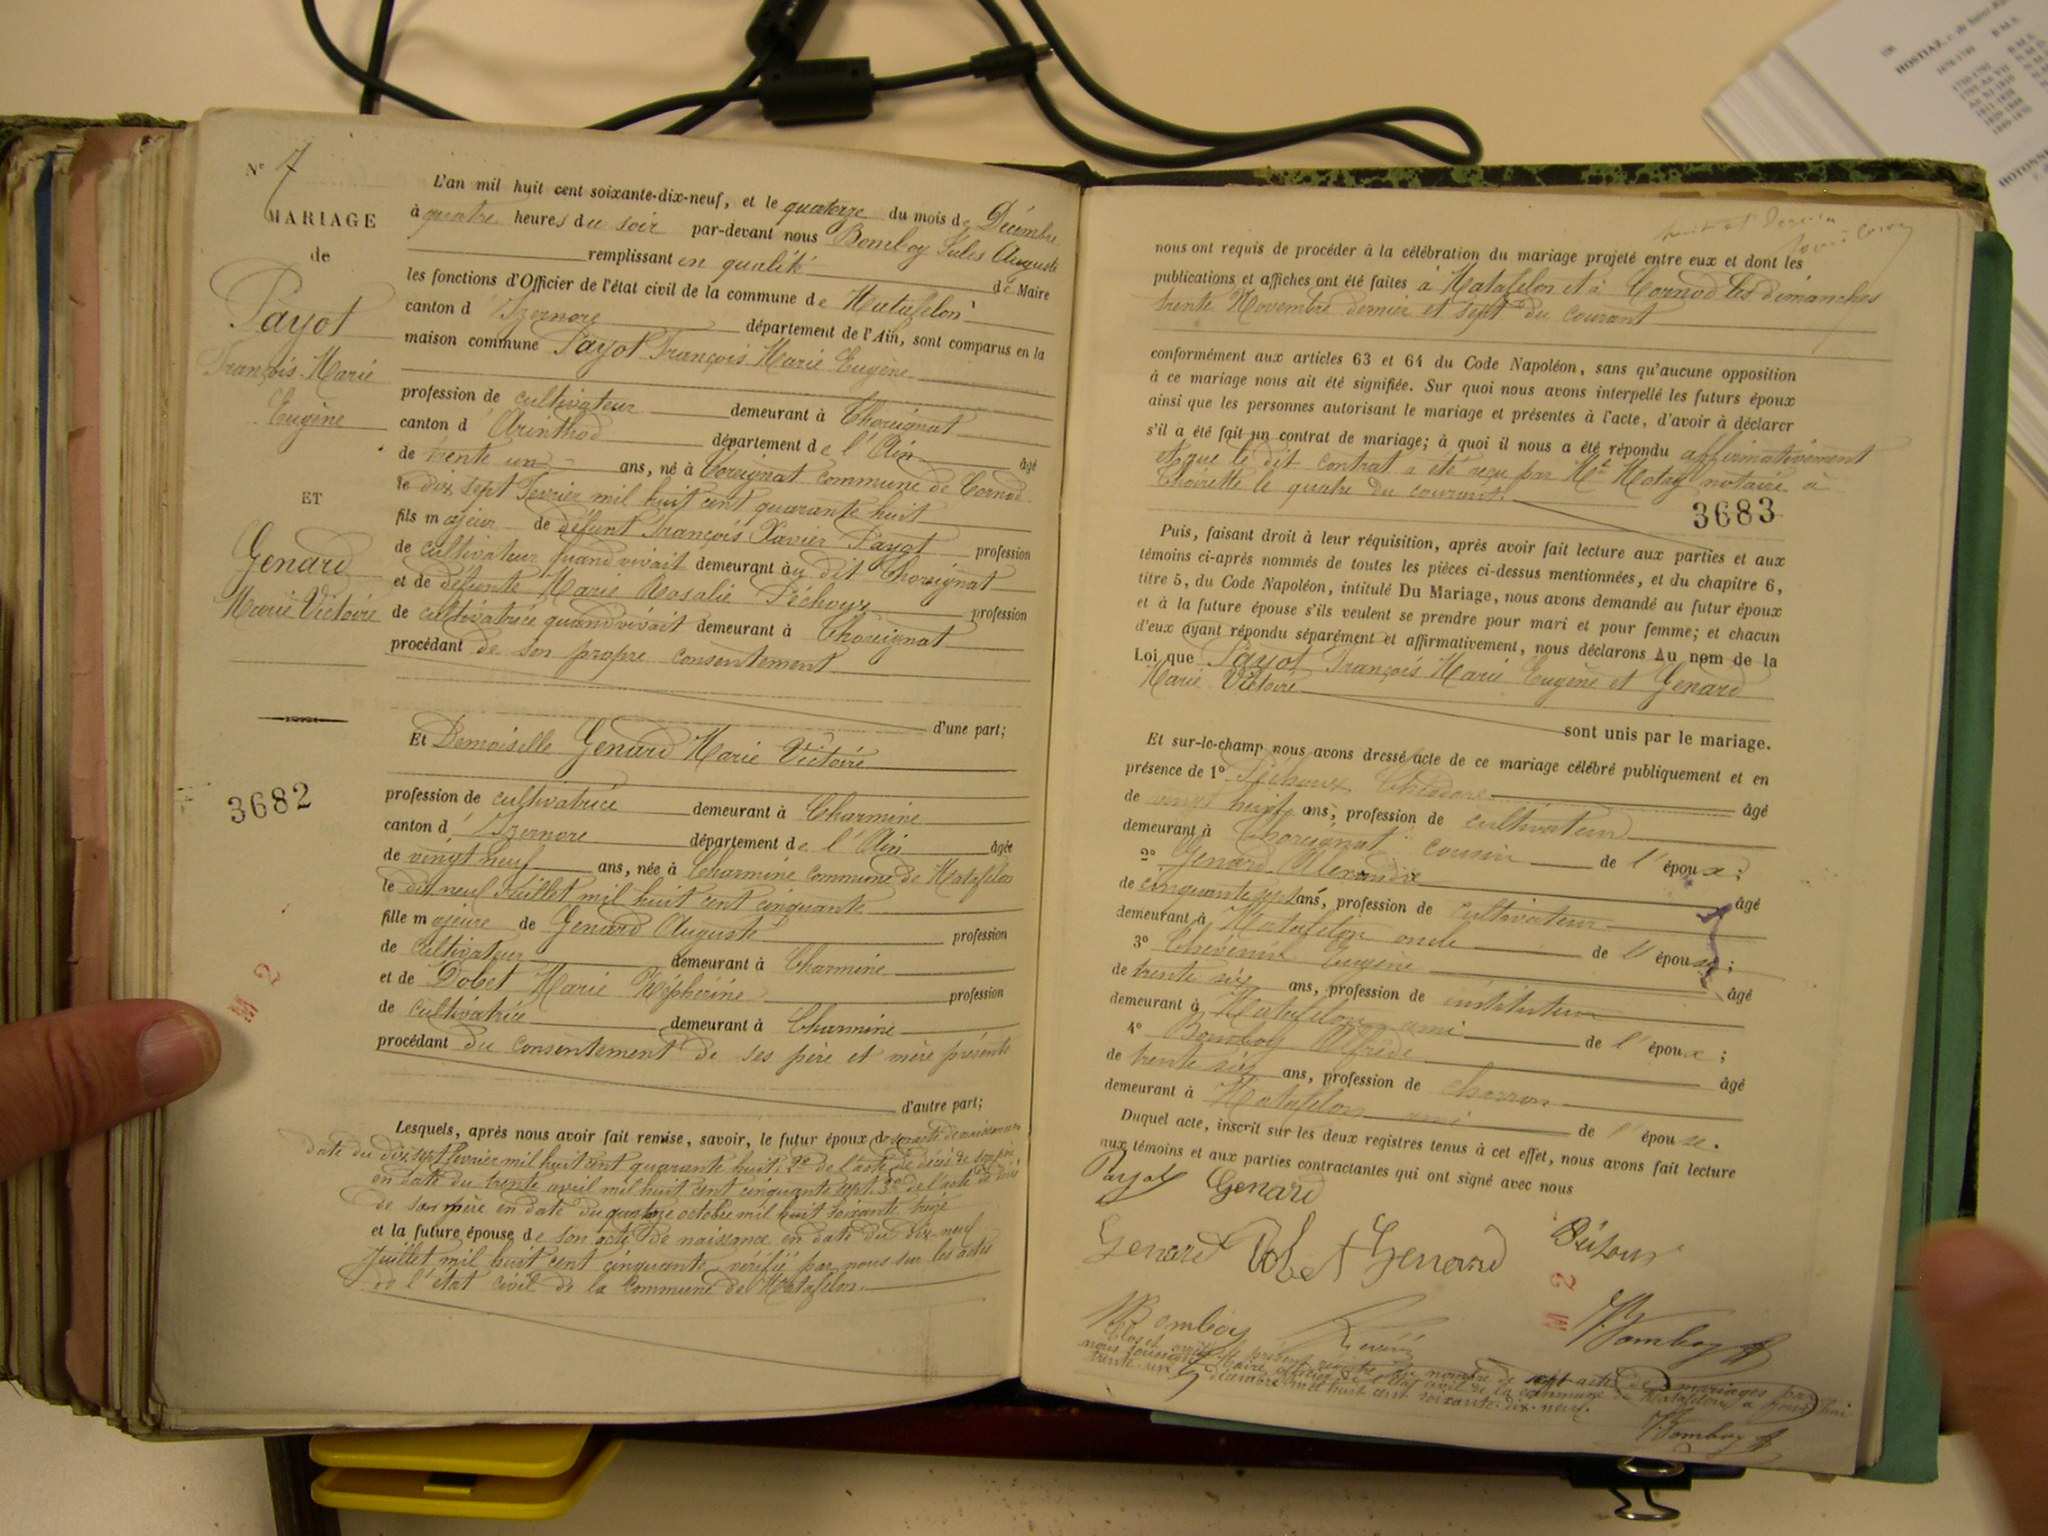 N° 7
MARIAGE
de
Payot
François Marie
Eugène
ET
Genard
Marie Victoire
3682
M 2
L'an mil huit cent soixante-dix-neuf, et le quatorze du mois de Décembre
à quatre heures du soir par-devant nous Bomboy Jules Auguste
remplissant en qualité de Maire
les fonctions d'Officier de l'état civil de la commune de Matafelon
canton d'Izernore département de l'Ain, sont comparus en la
maison commune Payot François Marie Eugène
profession de cultivateur demeurant à Thoreignat
canton d'Arinthod département de l'Ain âgé
de trente un ans, né à Coreignat commune de Cornod
le dix sept Fevrier mil huit cent quarante huit
fils majeur de défunt François Xavier Payot profession
de cultivateur quand vivait demeurant au dit Thoreignat
et de défunte Marie Rosalie Péchoux profession
de cultivatrice quand vivait demeurant à Thoreignat
procédant de son propre consentement
d'une part;
Et Demoiselle Genard Marie Victoire
profession de cultivatrice demeurant à Charmine
canton d'Izernore département de l'Ain âgée
de vingt neuf ans, née à Charmine commune de Matafelon
le dix neuf Juillet mil huit cent cinquante
fille majeure de Genard Auguste profession
de cultivateur demeurant à Charmine
et de Dobet Marie profession
de cultivatrice demeurant à Charmine
procédant du consentement de ses père et mère présents
d'autre part;
Lesquels, après nous avoir fait remise, savoir, le futur époux de son acte de naissance en
date du dix sept fevrier mil huit cent quarante huit, 2° de l'acte de décès de son père
en date du trente avril mil huit cent cinquante sept 3° de l'acte de décès
de sa mère en date du quatorze octobre mil huit soixante treize
et la future épouse de son acte de naissance en date du dix-neuf
Juillet mil huit cent cinquante, vérifié par nous sur les actes
de l'état civil de la commune de Matafelon.
nous ont requis de procéder à la célébration du mariage projeté entre eux et dont les
publications et affiches ont été faites à Matafelon et à Cornod les dimanches
trente Novembre dernier et sept du courant
conformément aux articles 63 et 64 du Code Napoléon, sans qu'aucune opposition
à ce mariage nous ait été signifiée. Sur quoi nous avons interpellé les futurs époux
ainsi que les personnes autorisant le mariage et présentes à l'acte, d'avoir à déclarer
s'il a été fait un contrat de mariage; à quoi il nous a été répondu affirmativement
et que le dit contrat a été reçu par Me notaire à
Thoirette le quatre du courant.
3683
Puis, faisant droit à leur réquisition, après avoir fait lecture aux parties et aux
témoins ci-après nommés de toutes les pièces ci-dessus mentionnées, et du chapitre 6,
titre 5, du Code Napoléon, intitulé Du Mariage, nous avons demandé au futur époux
et à la future épouse s'ils veulent se prendre pour mari et pour femme; et chacun
d'eux ayant répondu séparément et affirmativement, nous déclarons Au nom de la
Loi que Payot François Marie Eugène et Genard
Marie Victoire
sont unis par le mariage.
Et sur-le-champ nous avons dressé acte de ce mariage célébré publiquement et en
présence de 1° Péchoux Théodore âgé
de vingt huit ans, profession de cultivateur
demeurant à Thoreignat cousin de l'époux;
2° Genard Alexandre âgé
de cinquante sept ans, profession de cultivateur
demeurant à Matafelon oncle de l'épouse;
3° Eugène âgé
de trente six ans, profession de instituteur
demeurant à Matafelon ami de l'époux;
4° Bomboy Alfrède âgé
de trente six ans, profession de charron
demeurant à Matafelon ami de l'épouse.
Duquel acte, inscrit sur les deux registres tenus à cet effet, nous avons fait lecture
aux témoins et aux parties contractantes qui ont signé avec nous
Payot Genard
Genard Dobet Genard
M 2
Bomboy
Bomboy
Clos et arrêté le présent registre au nombre de sept actes de mariages par
nous soussigné Maire officier de l'état civil de la commune de Matafelon
trente un décembre mil huit cent soixante-dix-neuf.
Bomboy
HOSTIAZ